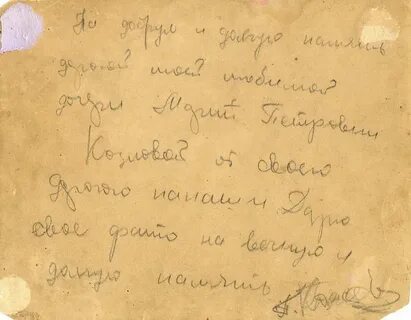 На добрую и долгую память
дорогой моей любимой
дочери Марии Петровны
Козловой от своего
дорогого папаши Дарю
свое фото на вечную и
долгую память